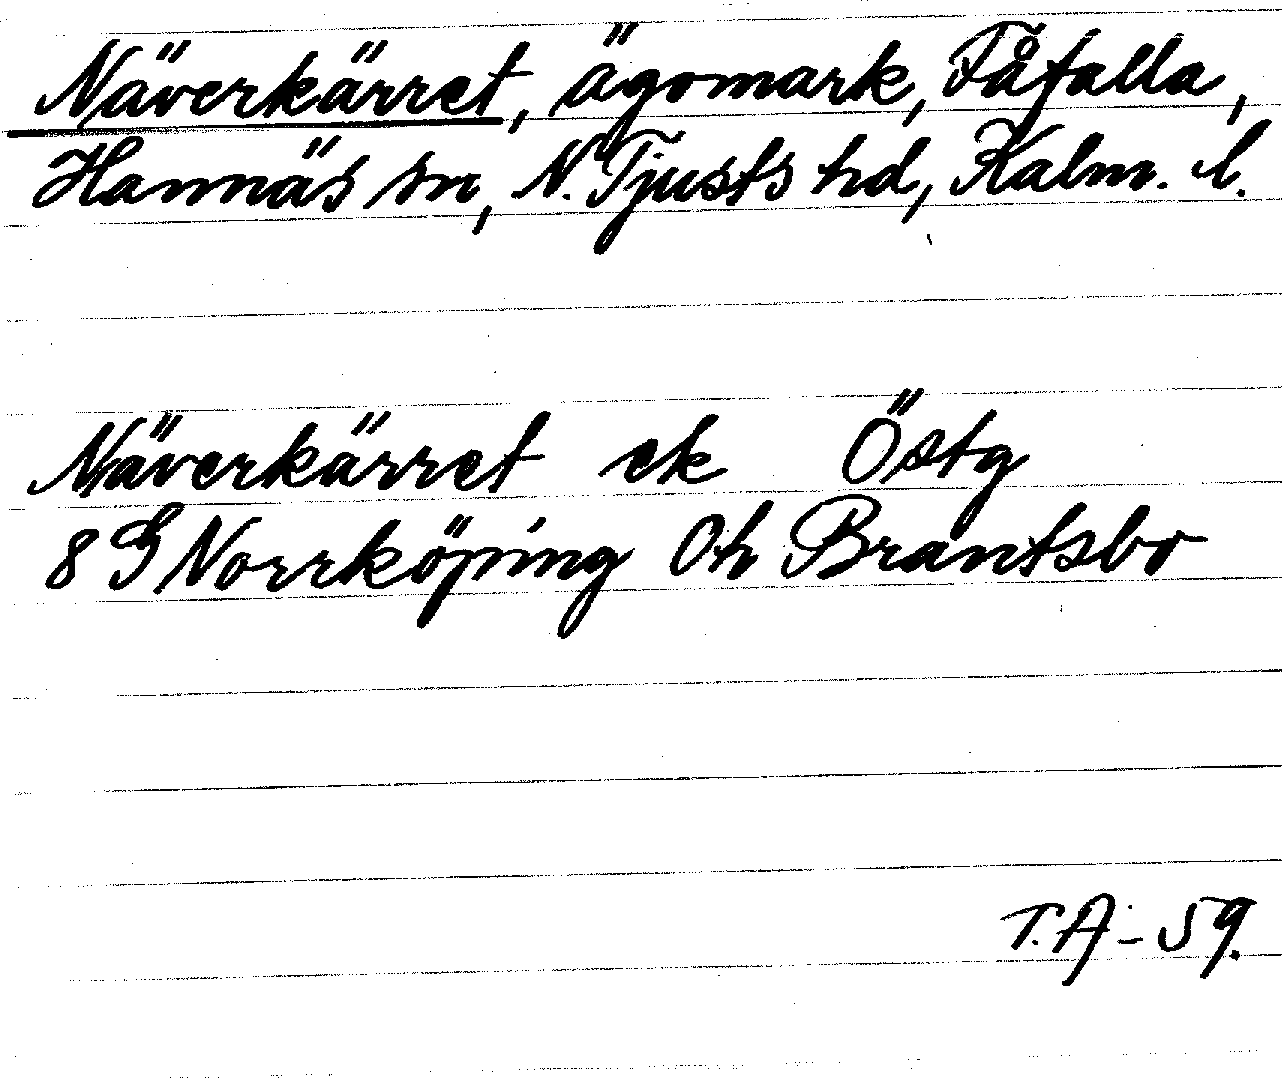 Näverkärret, ägomark, Fåfalla,
Hannäs sn, N. Tjusts hd, Kalm. l.
Näverkärret ek Östg
8 G Norrköping Öh Brantsbo
T.A - 59.